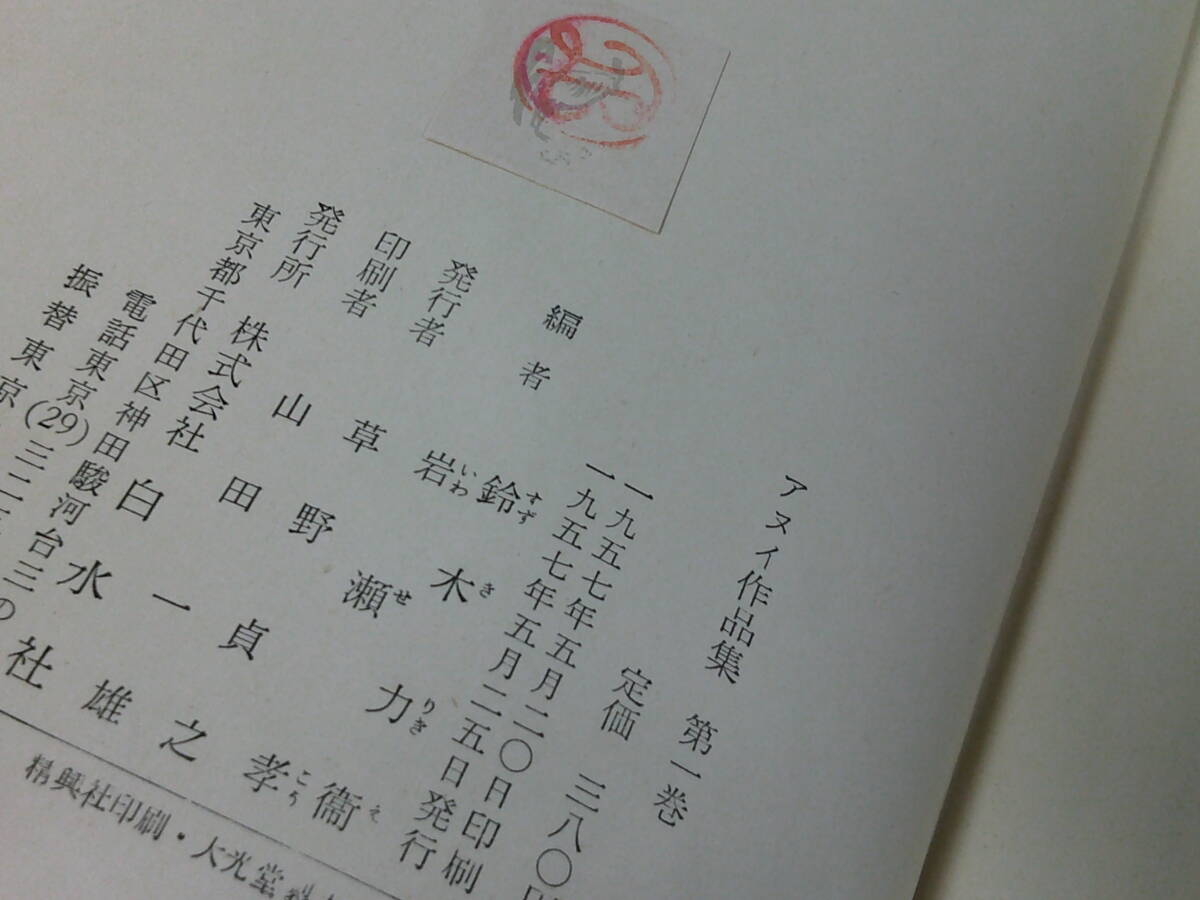 アヌイ作品集 第一巻
定価 三八〇
一九五七年五月二〇日印刷
一九五七年五月二五日発行
編者 鈴木力衞
すずきりきえ
岩瀬孝
いわせこう
発行者 草野貞之
印刷者 山田一雄
発行所 株式会社 白水社
東京都千代田区神田駿河台三の
電話東京(29)三二二
振替東京
精興社印刷・大光堂製